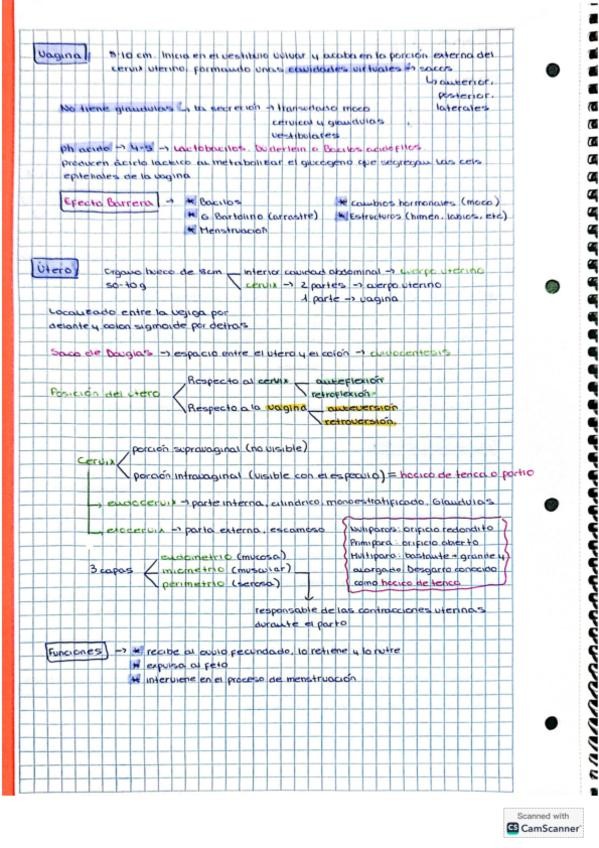 Vagina 8-10 cm. Inicia en el vestíbulo vulvar y acaba en la porción externa del
cervix uterino, formando unas cavidades virtuales → sacos
↳ anterior,
posterior,
laterales
No tiene glandulas ↳ la secreción → trasudano moco
cervical y glandulas
vestibulares
Ph acido → 4-5 → Lactobacilos, Doderlein o Bacilos acidofilos
Producen ácido lactico al metabolizar el glucogeno que segregan las cels
epiteliales de la vagina
Efecto Barrera → * Bacilos * cambios hormonales (moco)
* G Bartolino (arrastre) * Estructuras (himen, labios, etc)
* Menstruación
Útero Organo hueco de 8cm interior cavidad abdominal → cuerpo uterino
50-70g cervix → 2 partes → cuerpo uterino
1 parte → vagina
Localizado entre la vejiga por
delante y colon sigmoide por detras
Saco de Douglas → espacio entre el utero y el colon → culdocentesis
Posición del utero Respecto al cervix anteflexión
retroflexión
Respecto a la vagina anteversión
retroversión
Cervix porción supravaginal (no visible)
porción intravaginal (visible con el espéculo) = hocico de tenca o portio
→ endocervix → parte interna, cilindrico, monoestratificado. Glandulas
→ exocervix → parte externa, escamoso
Nuliparas: orificio redondito
Primipara: orificio abierto
Multipara: bastante + grande y
alargado. Desgarro conocido
como hocico de tenca
3 capas endometrio (mucosa)
miometrio (muscular)
perimetrio (serosa)
responsable de las contracciones uterinas
durante el parto
Funciones → * recibe al ovulo fecundado, lo retiene y lo nutre
* expulsa al feto
* interviene en el proceso de menstruación
Scanned with
CS CamScanner